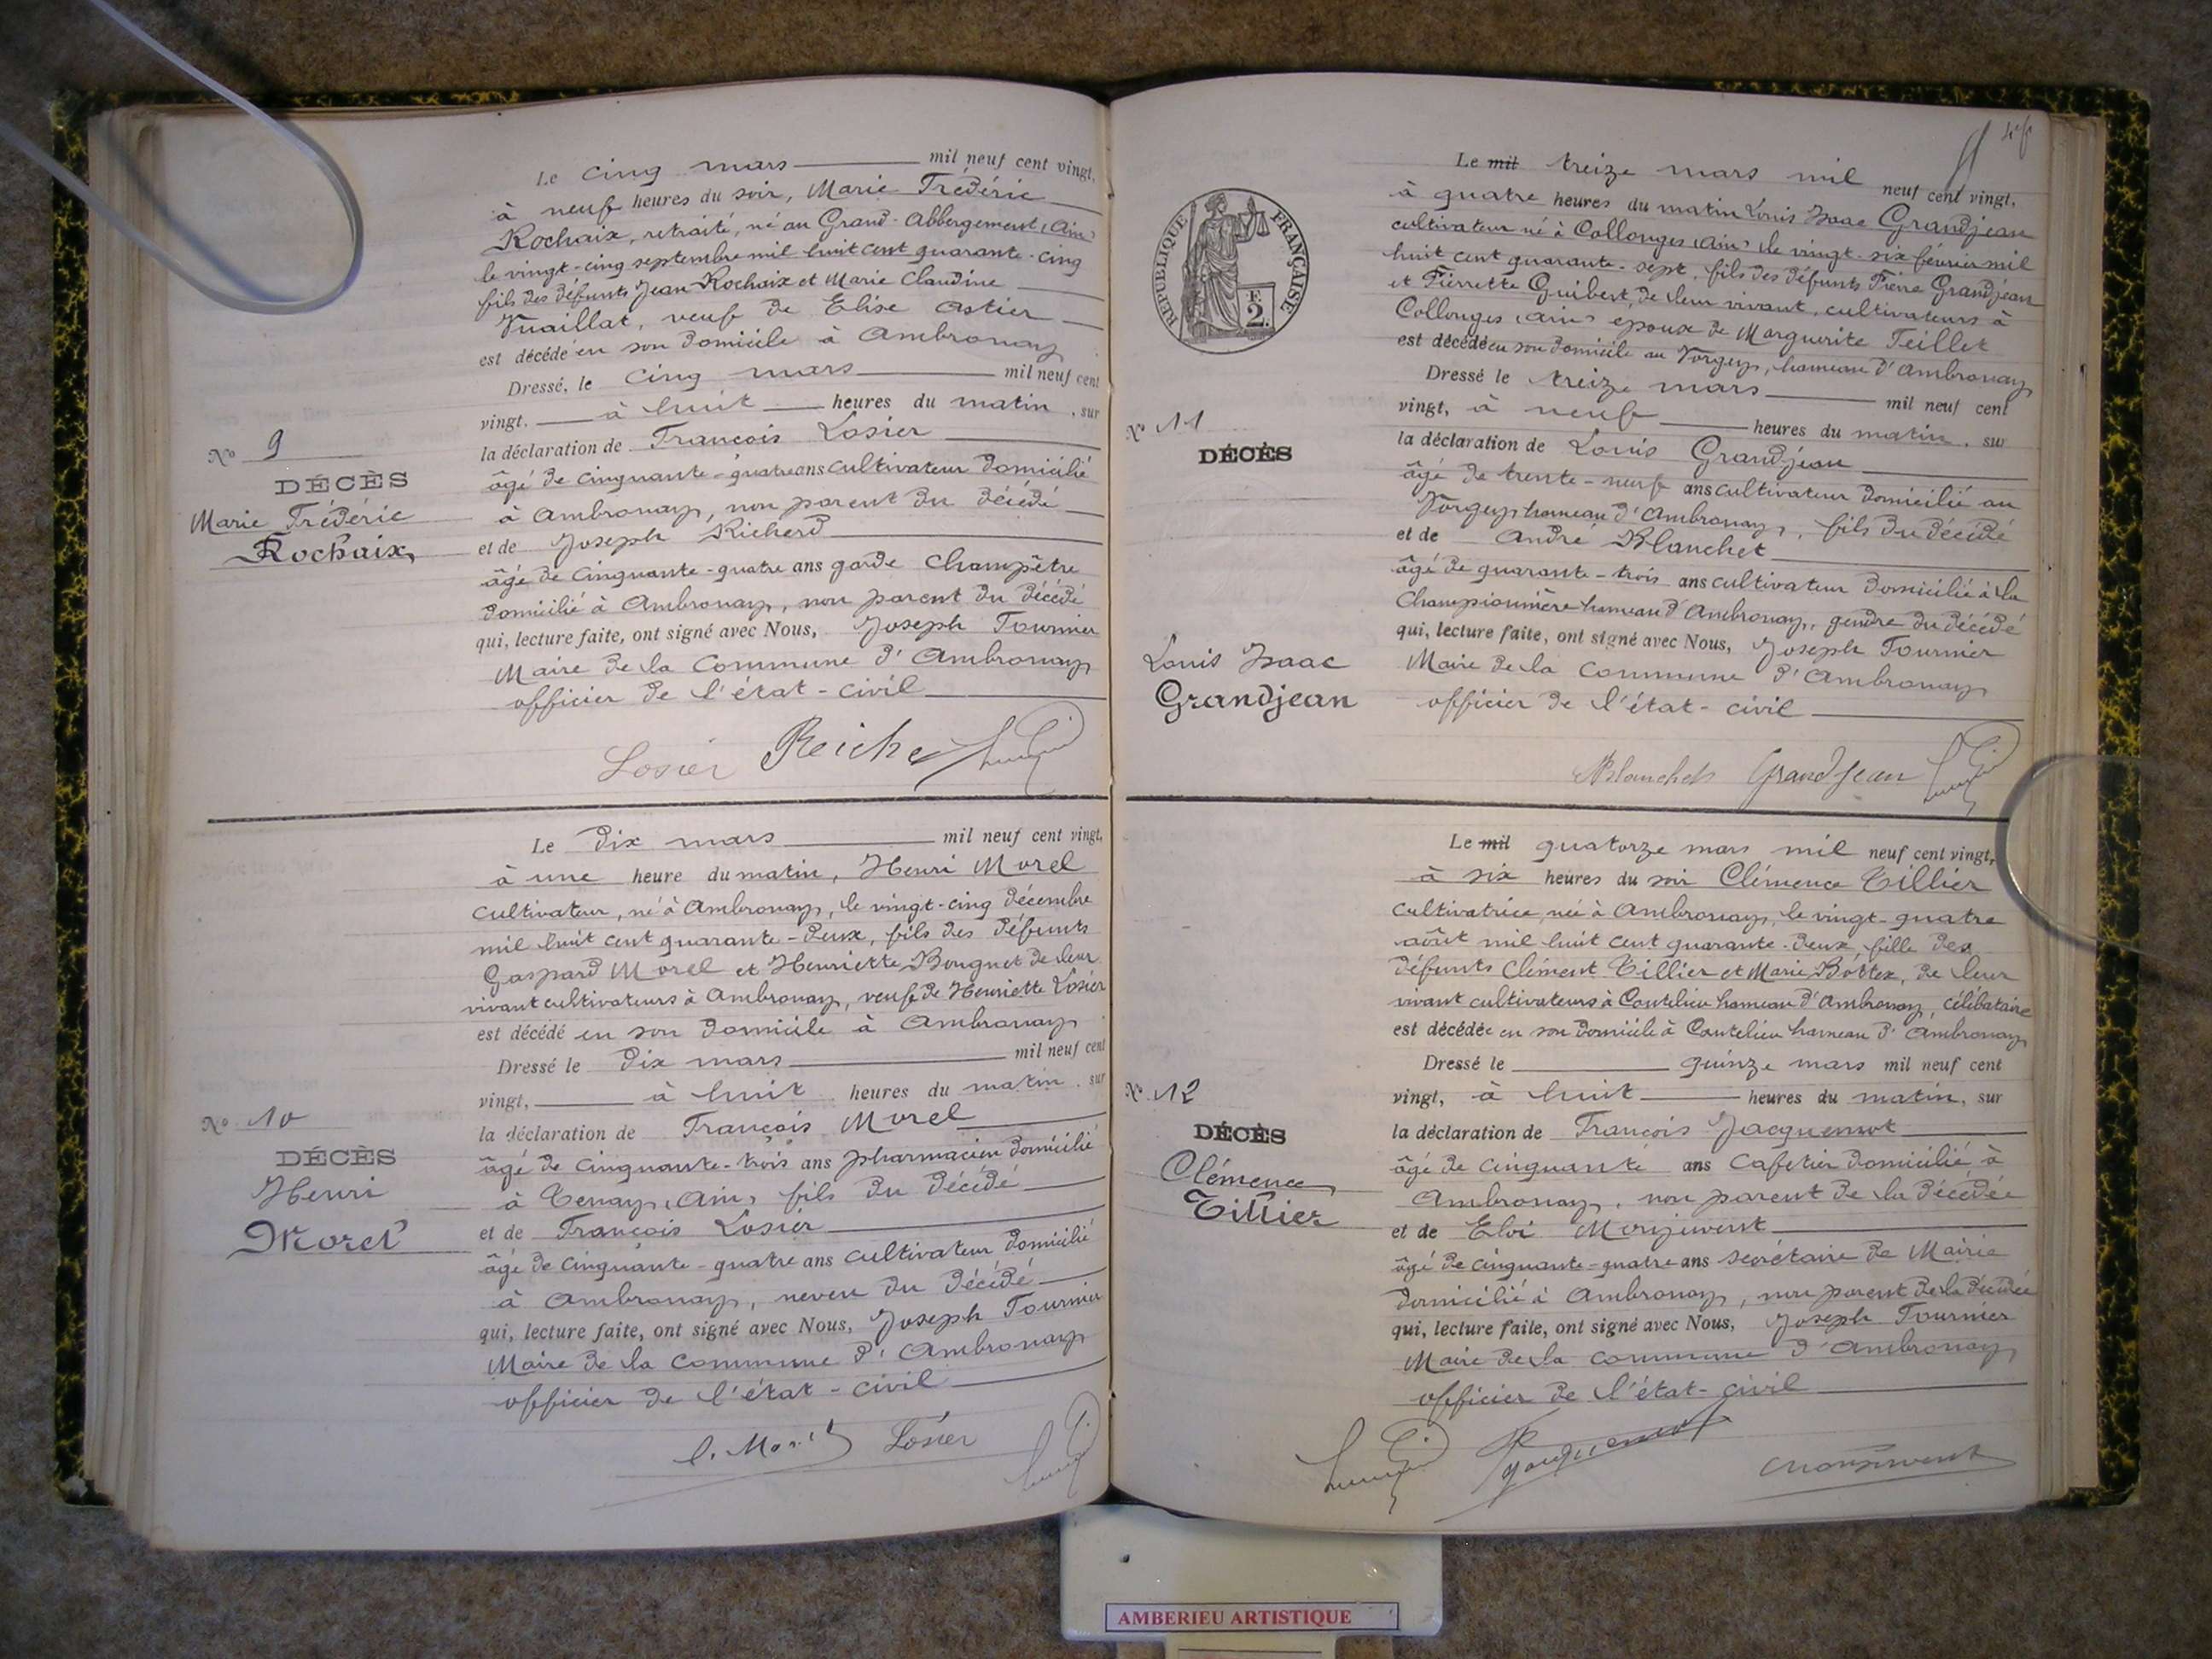 Le cinq mars mil neuf cent vingt,
à neuf heures du soir, Marie Frédéric
Rochaix, retraité, né au Grand-Abbergement (Ain)
le vingt-cinq septembre mil huit cent quarante-cinq
fils des défunts Jean Rochaix et Marie Claudine
Vuaillat, veuf de Elise Astier
est décédé en son domicile à Ambronay
Dressé, le cinq mars mil neuf cent
vingt, à huit heures du matin, sur
la déclaration de François Losier
âgé de cinquante-quatre ans cultivateur domicilié
à Ambronay, non parent du décédé
et de Joseph Richerd
âgé de cinquante-quatre ans garde champêtre
domicilié à Ambronay, non parent du décédé
qui, lecture faite, ont signé avec Nous, Joseph Tournier
Maire de la Commune d'Ambronay
officier de l'état-civil
Losier
No 9
DÉCÈS
Marie Frédéric
Rochaix
Le dix mars mil neuf cent vingt,
à une heure du matin, Henri Morel
cultivateur, né à Ambronay, le vingt-cinq décembre
mil huit cent quarante-deux, fils des défunts
Gaspard Morel et Henriette Bouquet de leur
vivant cultivateurs à Ambronay, veuf de Henriette Losier
est décédé en son domicile à Ambronay
Dressé le dix mars mil neuf cent
vingt, à huit heures du matin, sur
la déclaration de François Morel
âgé de cinquante-trois ans pharmacien domicilié
à Tenay (Ain) fils du décédé
et de François Losier
âgé de cinquante-quatre ans cultivateur domicilié
à Ambronay, neveu du décédé
qui, lecture faite, ont signé avec Nous, Joseph Tournier
Maire de la Commune d'Ambronay
officier de l'état-civil
Losier
No 10
DÉCÈS
Henri
Morel
RÉPUBLIQUE FRANÇAISE
2.
Le mil treize mars mil neuf cent vingt,
à quatre heures du matin Louis Isaac Grandjean
cultivateur né à Collonges (Ain) le vingt-six février mil
huit cent quarante-sept, fils des défunts Pierre Grandjean
et Pierrette Guibert, de leur vivant, cultivateurs à
Collonges (Ain) époux de Marguerite Teillet
est décédé en son domicile au Vorgey, hameau d'Ambronay
Dressé le treize mars mil neuf cent
vingt, à neuf heures du matin, sur
la déclaration de Louis Grandjean
âgé de trente-neuf ans cultivateur domicilié au
Vorgey hameau d'Ambronay, fils du décédé
et de André Blanchet
âgé de quarante-trois ans cultivateur domicilié à la
Championnière hameau d'Ambronay, gendre du décédé
qui, lecture faite, ont signé avec Nous, Joseph Tournier
Maire de la Commune d'Ambronay
officier de l'état-civil
Blanchet Grandjean
No 11
DÉCÈS
Louis Isaac
Grandjean
Le mil quatorze mars mil neuf cent vingt,
à six heures du soir Clémence Tillier
cultivatrice, née à Ambronay, le vingt-quatre
août mil huit cent quarante-deux, fille des
défunts Clément Tillier et Marie Bottex, de leur
vivant cultivateurs à Coutelieu hameau d'Ambronay, célibataire
est décédée en son domicile à Coutelieu hameau d'Ambronay
Dressé le quinze mars mil neuf cent
vingt, à huit heures du matin, sur
la déclaration de François Jacquemot
âgé de cinquante ans cafetier domicilié à
Ambronay, non parent de la décédée
et de Eloi Monjuvent
âgé de cinquante-quatre ans secrétaire de Mairie
domicilié à Ambronay, non parent de la décédée
qui, lecture faite, ont signé avec Nous, Joseph Tournier
Maire de la commune d'Ambronay
officier de l'état-civil
Monjuvent
No 12
DÉCÈS
Clémence
Tillier
AMBERIEU ARTISTIQUE